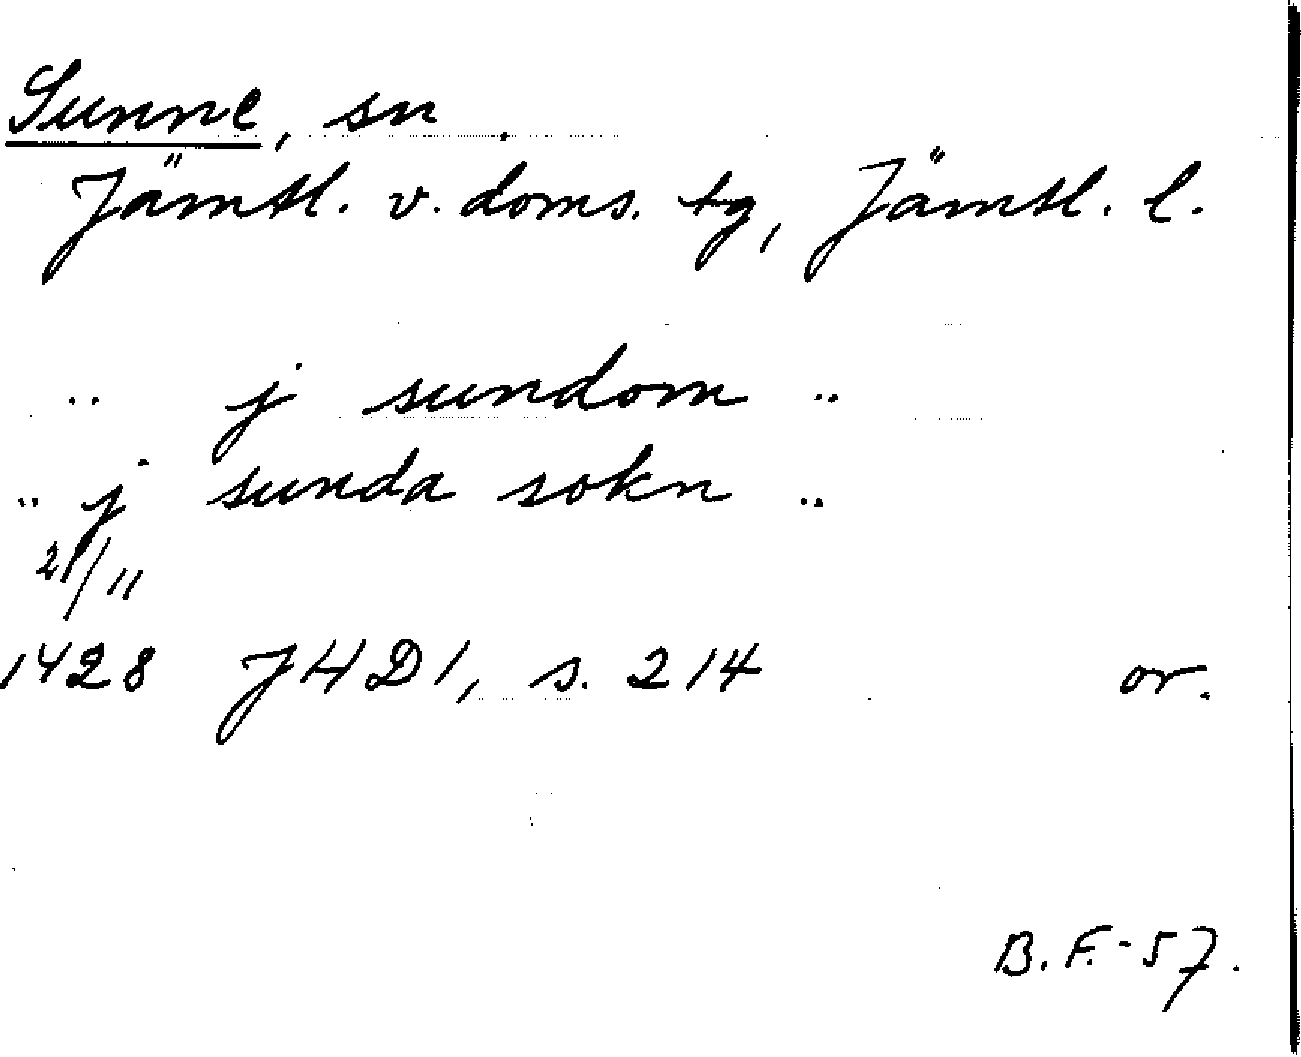 Sunne, sn
Jämtl. v. doms. tg, Jämtl. l.
.. j sundom ..
.. j sunda sokn ..
21/11
1428 JHD1, s. 214 or.
B.F.-57.